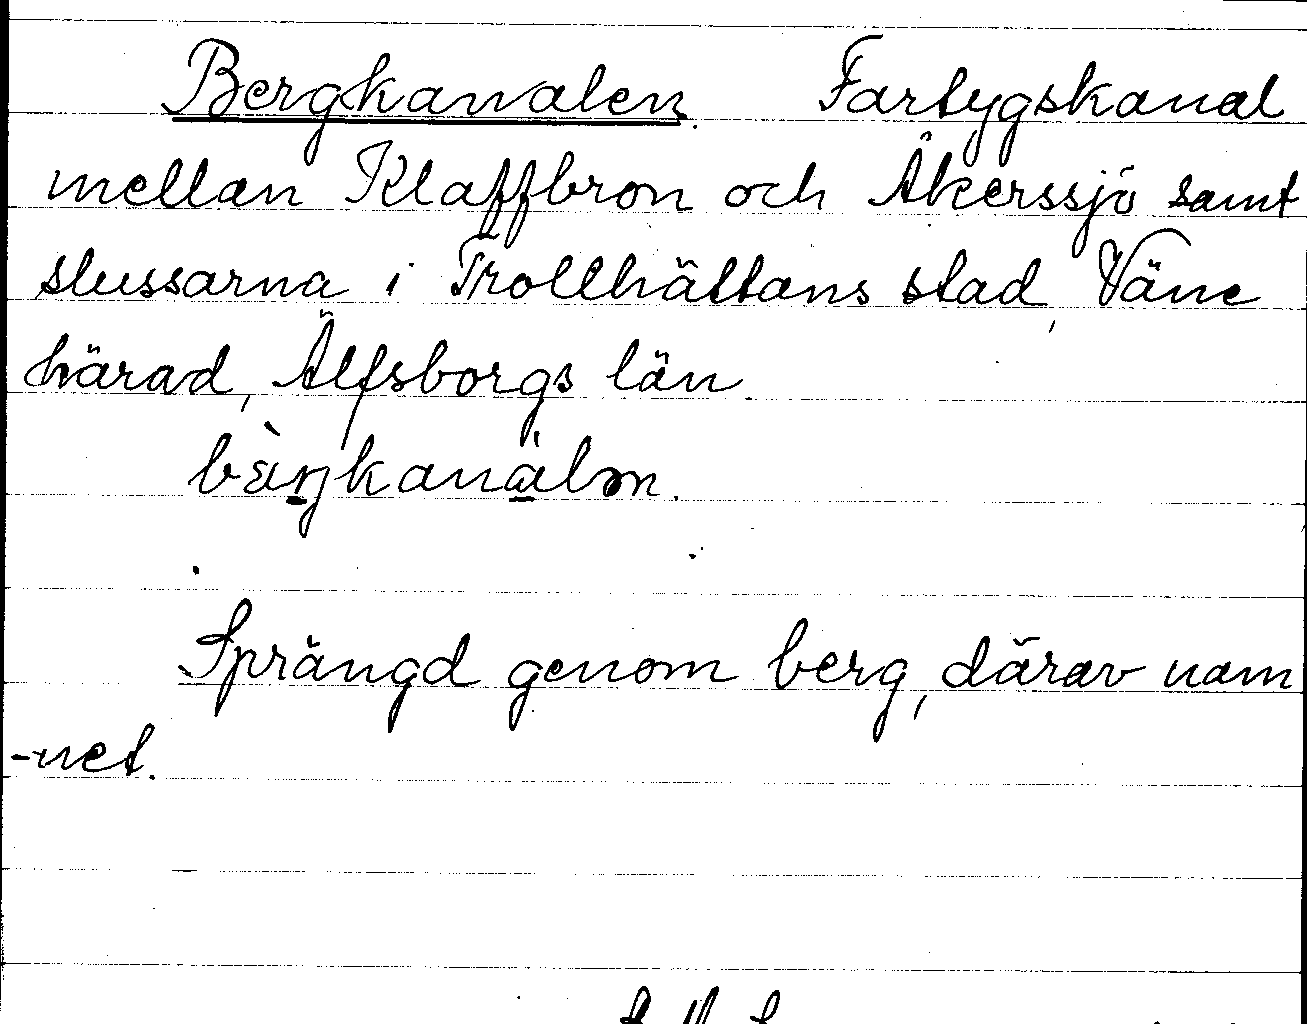 Bergkanalen. Fartygskanal
mellan Klaffbron och Åkerssjö samt
slussarna i Trollhättans stad, Väne
härad, Älfsborgs län.
Sprängd genom berg, därav nam
-net.